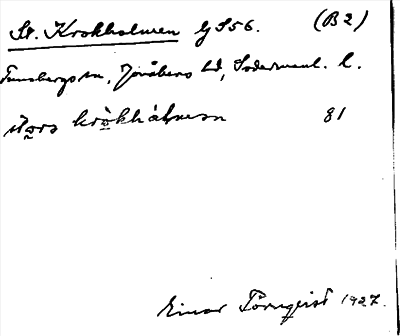 St. Krokholmen GS56. (B2)
Tunabergs sn, Jönåkers hd, Södermanl. l.
stora krokhålmen 81
Einar Törnqvist 1927.